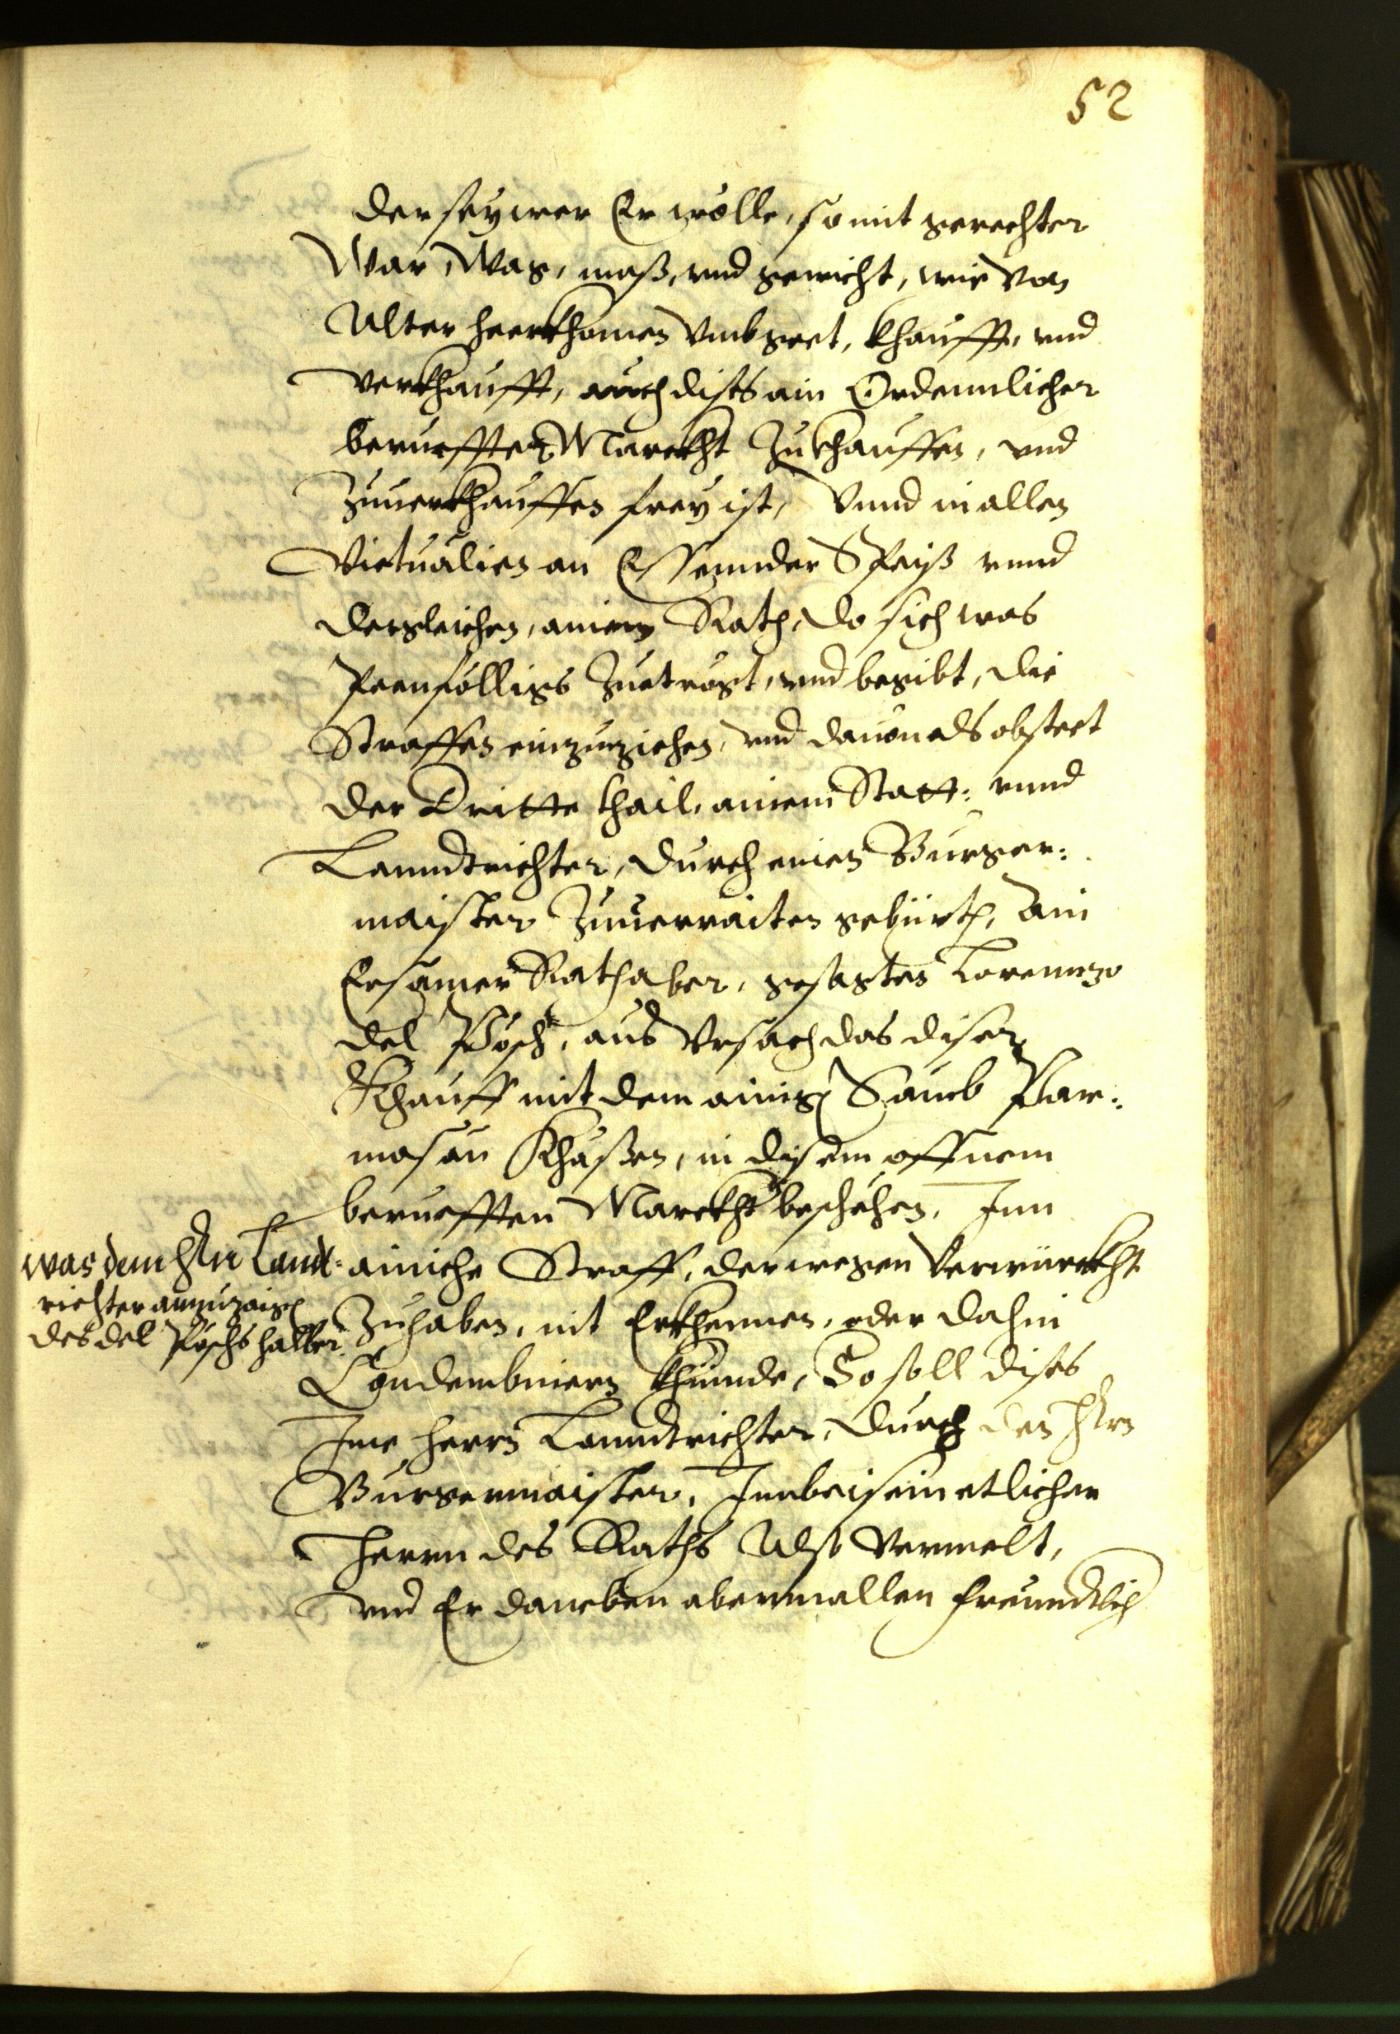 52
der sey wer Er wölle, so mit gerechter
War, Wag, maß, vnd gewicht, wie von
Alter heerkhomen vmbgeet, khaufft, vnd
verkhaufft, auch dits ain Ordennlicher
berueffter Marckht zukhauffen, vnd
zuuerkhauffen frey ist, Vnnd in allen
Victualien an Essennder Speiß vnnd
dergleichen, ainem Rath, do sich was
Peenfölligs zuetregt, vnd begibt, die
Straffen einzuziehen, vnd dauon als obsteet
der Dritte thail, ainem Statt: vnnd
Lanndtrichter, durch einen Burger:
maister zuuerraiten gebürth, Ain
Ersamer Rath aber, gesagten Lorennzo
del Pösch, aus Vrsach das diser
Khauff mit dem ainigen Saumb Par:
mesan Khäßen, in disem offnem
beruefften Marckht beschehen, Inn
ainiche Straff, derwegen Verwürckht
zuhaben, nit Erkhennen, oder dahin
Condembniern khünde, So soll dises
Ime herrn Lanndtrichter, durch den Hrn
Burgermaister, Inn beisein etlicher
Herrn des Raths Also Vermelt,
vnd Er daneben abermallen freundtlich
was dem Hrn Landt:
richter anzuzaigen
des del Pöschs halber